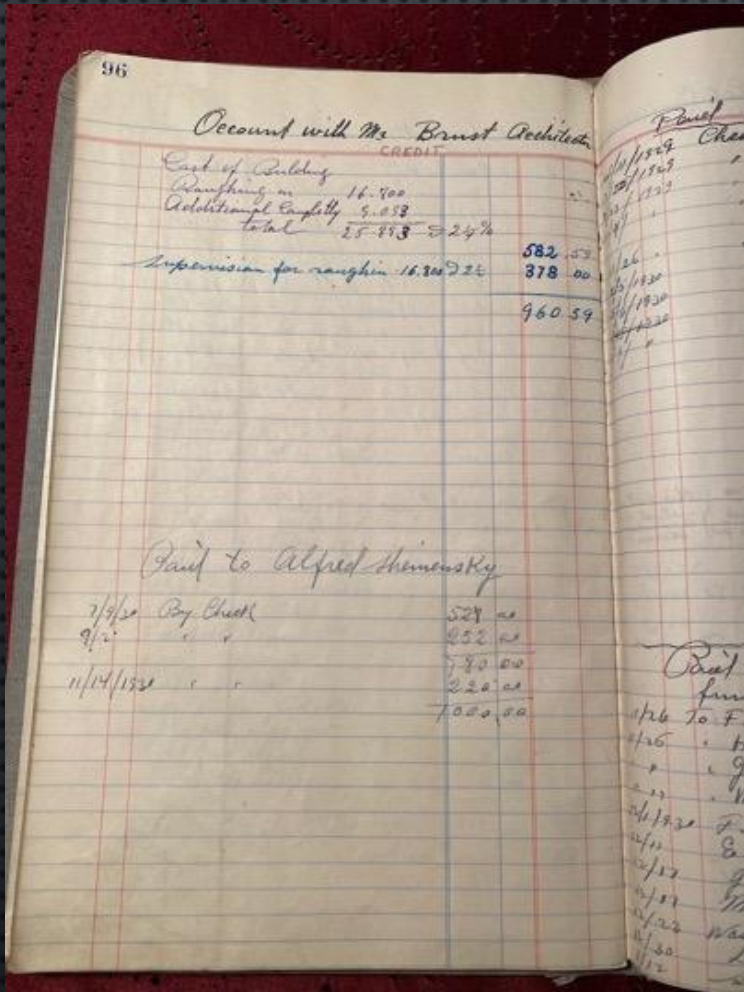 96
Account with Mr Brust Architects
CREDIT
Cost of Building
Roughing in 16.800
Additional 9.093
total 25.893 @ 2¼%
582 59
Supervision for roughin 16.800 @ 2¼ 378 00
960 59
Paid to Alfred Shemensky
7/9/30 By Check 528 00
9/2 " " 252 00
780 00
11/14/1930 " " 220 00
1000.00
Paid
11/1929
1929
1929
26
1930
1930
1930
Paid
1/26 To F
1/26 " H
" " G
F.
12/17